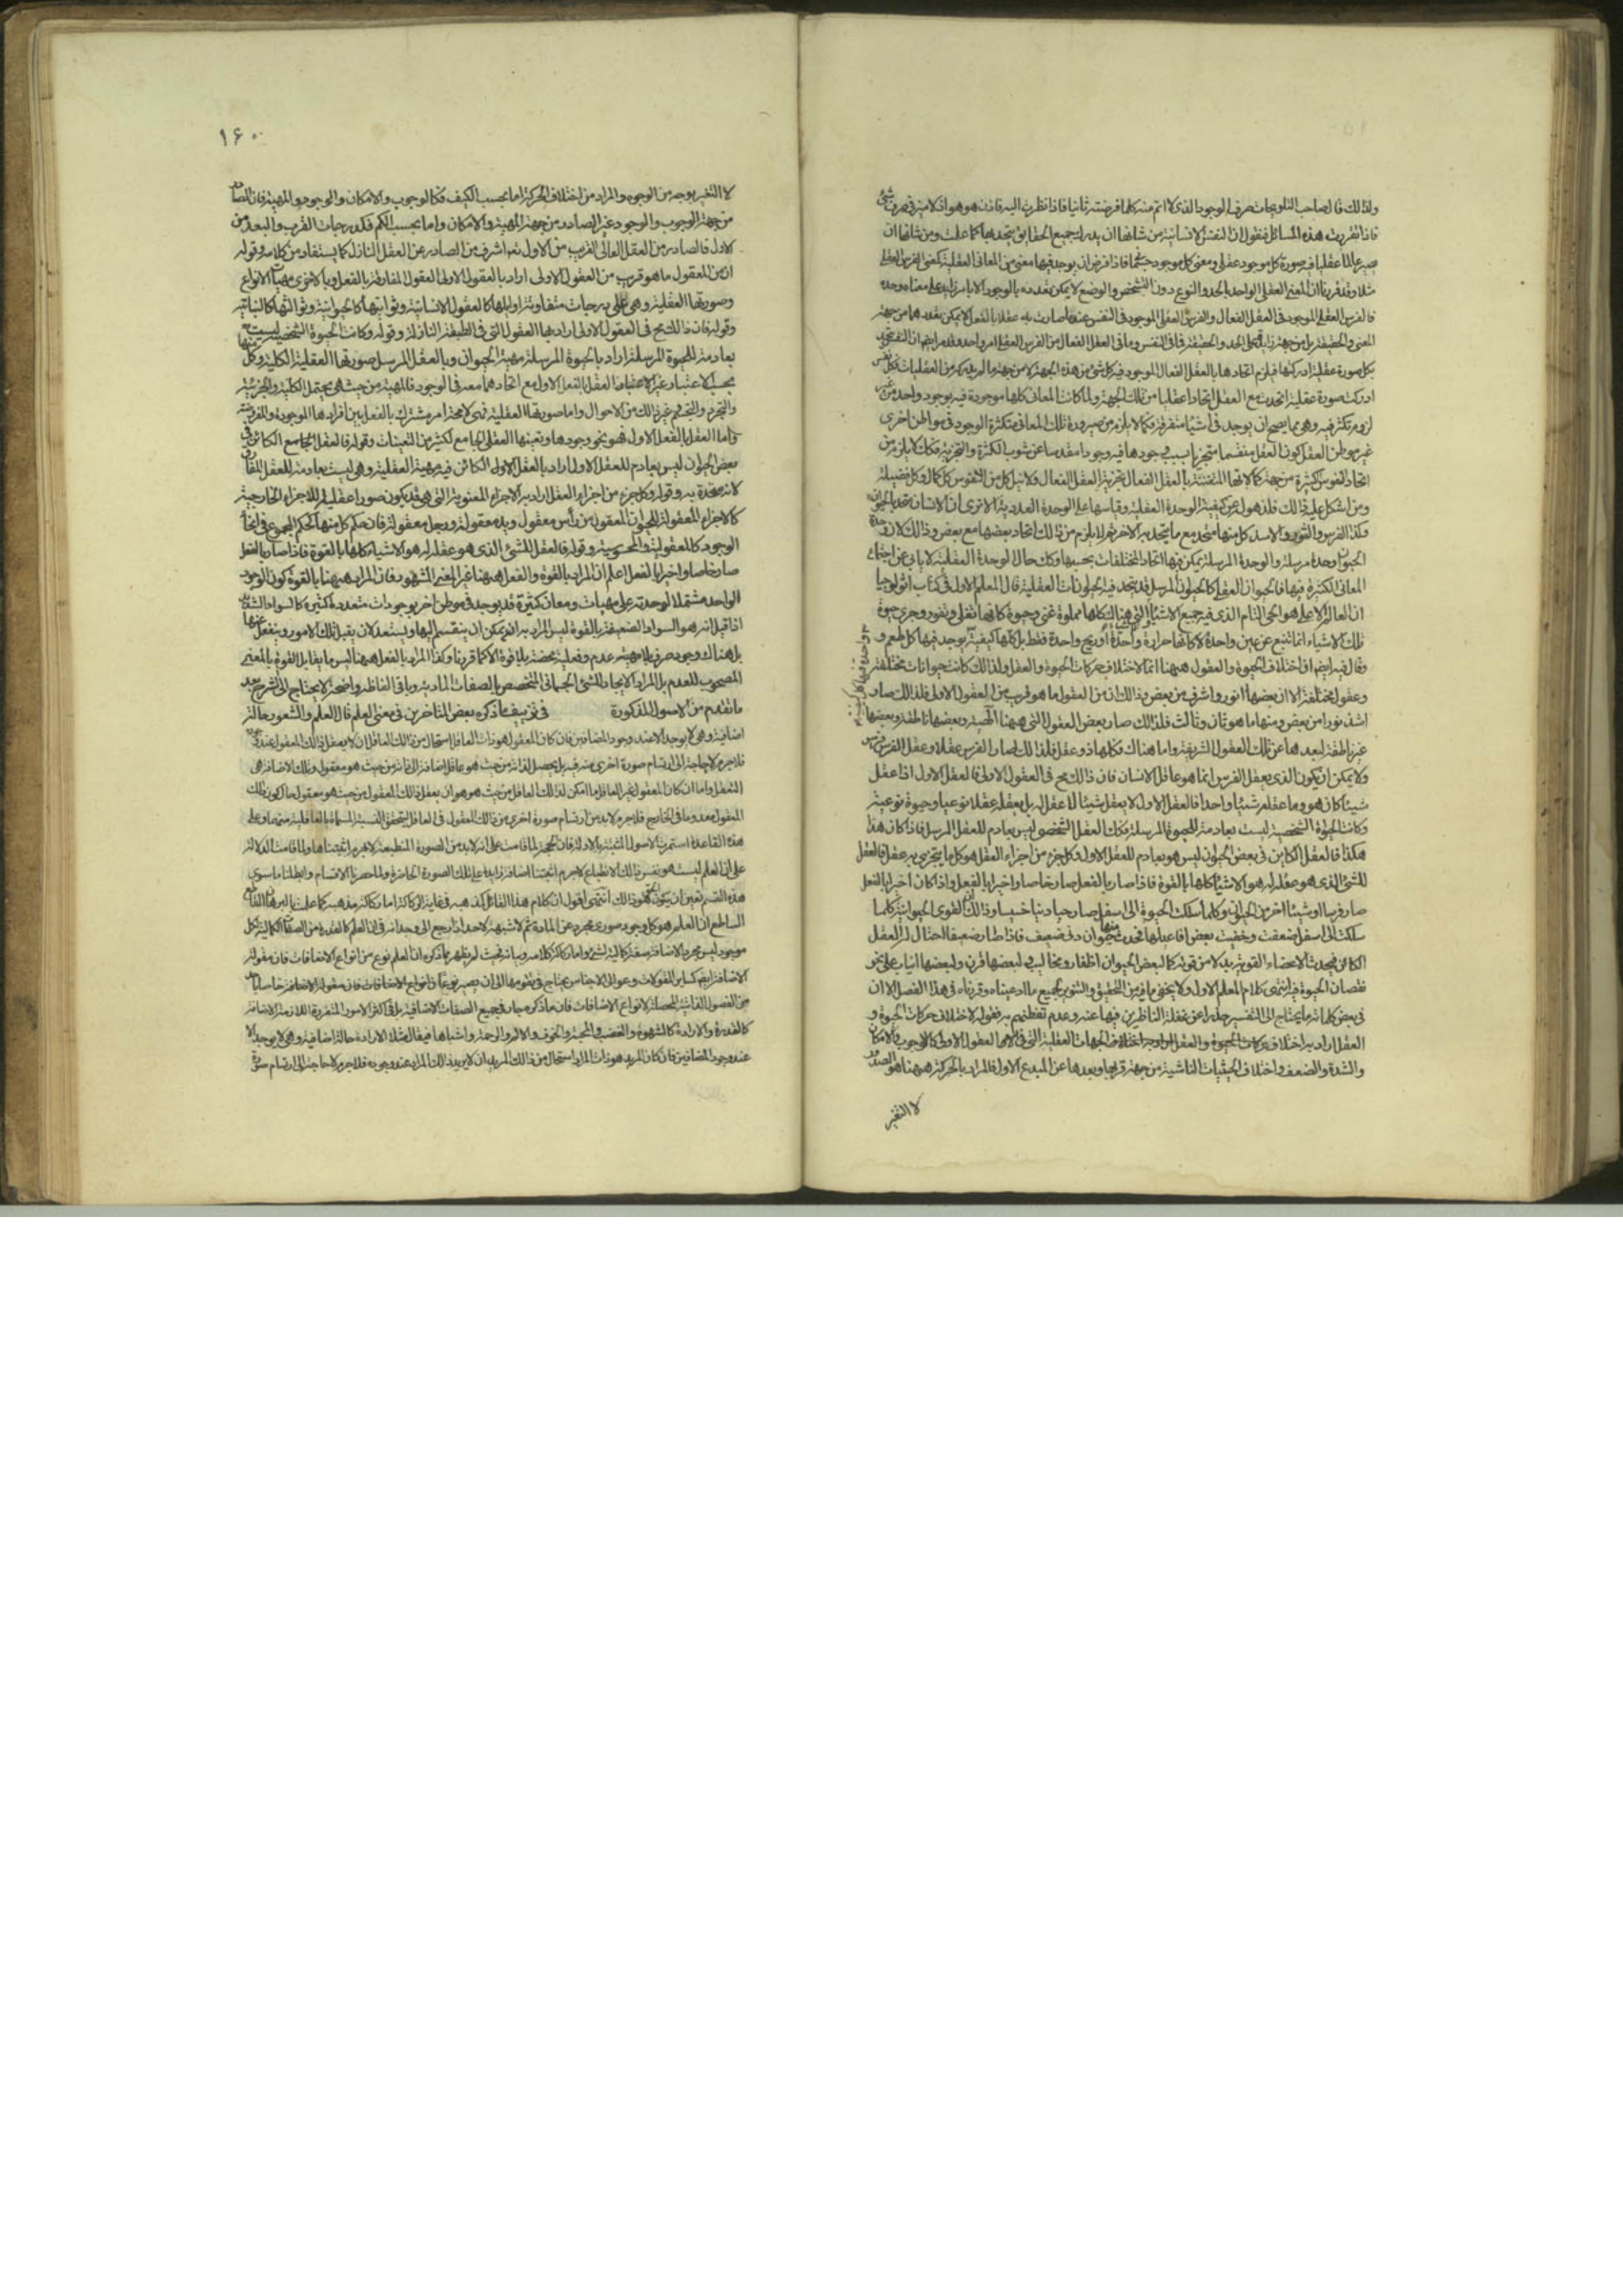 ولذلك قال صاحب التلويحات صرف الوجود الذي لا اتم منه كلما فرضته ثانيا فاذا نظرت اليه فاذن هو هو اذ لا ميز في صرف شئ
فاذا تقررت هذه المسائل فنقول ان النفس الانسانية من شانها ان يدرك جميع الحقايق ويتحد بها كما علمت ومن شانها ان
يصير عالما عقليا فيه صورة كل موجود عقلي ومعنى كل موجود جسمانى فاذا فرض ان يوجد فيها معنى من المعاني العقلية كمعنى الفرس العقلي
مثلا وقد قررنا ان المعنى العقلي الواحد بالحد والنوع دون التشخص والوضع لا يمكن تعدده بالوجود الا بامر زايد على معناه وحده
فالفرس العقلي الموجود في العقل الفعال والفرس العقلي الموجود في النفس عندما صارت به عقلا بالفعل لا يمكن تعددهما من جهة
المعنى والحقيقة بل من جهة زايد على الحد والحقيقة فما في النفس وما في العقل الفعال من الفرس العقلي امر واحد وقد مر ايضا ان النفس يتحد
بكل صورة عقلية ادركتها فيلزم اتحادها بالعقل الفعال الموجود فيه كل شئ من هذه الجهة لا من جهة ما لم يدركه من العقليات فكل نفس
ادركت صورة عقلية اتحدت مع العقل اتحادا عقليا من تلك الجهة ولما كانت المعاني كلها موجودة فيه بوجود واحد من غير
لزوم تكثر فيه وهي مما يصح ان يوجد في اشياء متفرقة فكما لا يلزم من صيرورة تلك المعاني متكثرة الوجود في مواطن اخرى
غير موطن العقل كون العقل منقسما متجزيا بسبب وجودها فيه وجودا مقدسا عن شوب الكثرة والتجزية فكك لا يلزم من
اتحاد النفوس الكثيرة من جهة كمالاتها المتفننة بالعقل الفعال تجزية العقل الفعال ولا نيل كل من النفوس كل كمال وكل فضيلة
ومن اشكل عليه ذلك فلذهول عن كيفية الوحدة العقلية وقياسها على الوحدة العددية الا ترى ان الانسان متحد بالحيوان
وكذا الفرس والثور والاسد كل منها متحد مع ما يتحد به الاخر ثم لا يلزم من ذلك اتحاد بعضها مع بعض وذلك لان وحدة
الحيوان وحدة مرسلة والوحدة المرسلة يمكن فيها اتحاد المختلفات بحسبها وكك حال الوحدة العقلية لا يابى عن اجتماع
المعاني الكثيرة فيها فالحيوان العقلي كالحيوان المرسل قد يتحد فيه الحيوانات العقلية قال المعلم الاول في كتاب اثولوجيا
ان العالم الاعلى هو الحي التام الذي فيه جميع الاشياء التي هناك كلها مملوة غنى وحيوة كانها تغلى وتفور وجرى حيوة
تلك الاشياء انما تنبع عن عين واحدة لا كانها حرارة واحدة او ريح واحدة فقط بل كلها كيفية يوجد فيها كل طعم و
وقال فيه ايضا ان اختلاف الحيوة والعقول ههنا انما لاختلاف حركات الحيوة والعقل ولذلك كانت حيوانات مختلفة
وعقول مختلفة الا ان بعضها انور واشرف من بعض وذلك ان من العقول ما هو قريب من العقول الاولى فلذلك صار
اشد نورا من بعض ومنها ما هو ثان وثالث فلذلك صار بعض العقول التي ههنا الهية وبعضها ناطقة وبعضها
غير ناطقة لبعدها عن تلك العقول الشريفة واما هناك فكلها ذو عقل فلذلك صار الفرس عقلا وعقل الفرس فرس
ولا يمكن ان يكون الذي يعقل الفرس انما هو عاقل الانسان فان ذلك مح في العقول الاولى فالعقل الاول اذا عقل
شيئا كان هو وما عقله شيئا واحدا فالعقل الاول لا يعقل شيئا لا عقل له بل يعقله عقلا نوعيا وحيوة نوعية
وكانت الحيوة الشخصية ليست بعادمة للحيوة المرسلة فكك العقل الشخصي ليس بعادم للعقل المرسل فاذا كان هذا
هكذا فالعقل الكاين في بعض الحيوان ليس هو بعادم للعقل الاول وكل جزء من اجزاء العقل هو كل ما يتجزى به عقل فالعقل
للشئ الذي هو عقل له هو الاشياء كلها بالقوة فاذا صار بالفعل صار خاصا واخيرا بالفعل واذا كان اخيرا بالفعل
صار فرسا او شيئا اخر من الحيوان وكلما سلكت الحيوة الى اسفل صار حيا دنيا خسيسا وذلك ان القوى الحيوانية كلما
سلكت الى اسفل ضعفت وخفيت بعض افاعيلها فحدث منها حيوان دني ضعيف فاذا صار ضعيفا احتال له العقل
الكائن فيحدث الاعضاء القوية بدلا من قوته كما لبعض الحيوان اظفار ومخاليب ولبعضها قرون ولبعضها انياب على نحو
نقصان الحيوة فيه انتهى كلام المعلم الاول ولا يخفى ما فيه من التحقيق والتنوير لجميع ما ادعيناه وقررناه في هذا الفصل الا ان
في بعض كلماته ما يحتاج الى التفسير حذرا عن غفلة الناظرين فيها عنه وعدم تفطنهم به فقوله لاختلاف حركات الحيوة و
العقل اراد به اختلاف الجهات العقلية التي في العقول الاولى كالوجوب والامكان
والشدة والضعف واختلاف الحيثيات الناشية من جهة قربها وبعدها عن المبدع الاول فالمراد بالحركة ههنا هو الصدور
لا التغير
١۶٠
لا التغير بوجه من الوجوه والمراد من اختلاف الحركة اما بحسب الكيف فكالوجوب والامكان والوجود والمهية فان الصادر
من جهة الوجوب والوجود غير الصادر من جهة المهية والامكان واما بحسب الكم فكدرجات القرب والبعد من
الاول فالصادر من العقل العالي القريب من الاول تعالى اشرف من الصادر عن العقل النازل كما يستفاد من كلامه وقوله
ان من العقول ما هو قريب من العقول الاولى اراد بالعقول الاولى العقول المفارقة بالفعل وبالاخرى مهيات الانواع
وصورتها العقلية وهي على درجات متفاوتة اوايلها كالعقول الانسانية وثوانيها كالحيوانية وثوالثها كالنباتية
وقوله فان ذلك مح في العقول الاولى اراد بها العقول التي في الطبقة النازلة وقوله وكانت الحيوة الشخصية ليست
بعادمة للحيوة المرسلة اراد بالحيوة المرسلة مهية الحيوان وبالعقل المرسل صورتها العقلية الكلية وكل منها
بحسب الاعتبار غير الاعتبار العقل بالفعل الاول مع اتحادهما معه في الوجود فالمهية من حيث هي يحتمل الكلية والجزئية
والتجرد والتجسم وغير ذلك من الاحوال واما صورتها العقلية فهي لا محة امر مشترك بالفعل بين افرادها الموجودة والمفروضة
واما العقل بالفعل الاول فهو نحو وجودها وتعينها العقلي الجامع لكثير من التعينات وقوله فالعقل الكائن في
بعض الحيوان ليس بعادم للعقل الاول اراد بالعقل الاول الكائن فيه مهيته العقلية وهي ليست بعادمة للعقل المفارق
لانه متحدة به وقوله وكل جزء من اجزاء العقل اراد به الاجزاء المعنوية التي قد يكون صورا عقلية للاجزاء الخارجية
كالاجزاء المعقولة للحيوان المعقول من رأس معقول ويد معقولة ورجل معقولة فان حكم كل منها كحكم المجموع في انحاء
الوجود كالمعقولية والمحسوسية وقوله فالعقل للشئ الذي هو عقل له هو الاشياء كلها بالقوة فاذا صار بالفعل
صار خاصا واخيرا بالفعل اعلم ان المراد بالقوة والفعل ههنا غير المعنى المشهور فان المراد ههنا بالقوة كون الوجود
الواحد مشتملا لوحدته على مهيات ومعان كثيرة قد يوجد في موطن اخر بوجودات متعددة كثيرة كالسواد الشديد
اذا قيل انه هو السواد الضعيف بالقوة ليس المراد به انه يمكن ان ينقسم اليها ويستعد لان يقبل تلك الامور وينفعل عنها
بل هناك وجود صرف بلا عدم وفعلية محضة بلا قوة الا كما قررنا وكذا المراد بالفعل ههنا ليس ما يقابل القوة بالمعنى
المصحوب للعدم بل المراد الايجاد للشئ الجسماني المتخصص بالصفات المادية وباقي الفاظه واضحة لا يحتاج الى الشرح بعد
ما تقدم من الاصول المذكورة في تزييف ما ذكره بعض المتاخرين في معنى العلم قال العلم والشعور حالة
اضافية وهي لا يوجد الا عند وجود المضافين فان كان المعقول هو ذات العاقل استحال من ذلك العاقل ان لا يعقل ذلك المعقول عند
فلا جرم لا حاجة الى ارتسام صورة اخرى منه فيه بل يحصل لذاته من حيث هو عاقل اضافة الى ذاته من حيث هو معقول وتلك الاضافة هي
التعقل واما ان كان المعقول غير العاقل امكن لذلك العاقل من حيث هو هو ان يعقل ذلك المعقول من حيث هو معقول حال كون ذلك
المعقول معدوما في الخارج فلا جرم لا بد من ارتسام صورة اخرى من ذلك المعقول في العاقل ليتحقق النسبة المسماة بالعاقلية بينهما وعلى
هذه القاعدة استمرت الاصول المثبتة بالادلة فان الحجة لما قامت على انه لا بد من الصورة المنطبعة لا جرم اثبتناها ولما قامت الدلالة
على ان العلم ليس هو نفس ذلك الانطباع لا جرم اثبتنا اضافة زايدة على تلك الصورة الحاضرة ولما حصرنا الاقسام وابطلنا ما سوى
هذه القسم تعين ان يكون الحق هو ذلك انتهى اقول ان كلام هذا القائل كمذهبه في غاية الركاكة اما ركاكة مذهبه فكما علمت بالبرهان القاطع
الساطع ان العلم هو كل وجود صوري مجرد عن المادة ثم لا شبهة لاحد اذا رجع الى وجدانه في ان العلم كالقدرة من الصفات الكمالية لكل
موجود وليس مجرد الاضافة صفة كمالية لشئ واما ركاكة كلامه وبيانه فحيث لم يظهر مما ذكره ان العلم نوع من انواع الاضافات فان مقولة
الاضافة ايضا كساير المقولات وعوالي الاجناس يحتاج في تقومها الى ان يصير نوعا من انواع الاضافات
من الفصول الذاتية المحصلة لانواع الاضافات فان ما ذكره جار في جميع الصفات الاضافية بل في اكثر الامور المتقررة اللازمة الاضافة
كالقدرة والارادة كالشهوة والغضب والمحبة والخوف والالم والرحمة واشباهها فيقال مثلا الارادة حالة اضافية وهي لا يوجد الا
عند وجود المضافين فان كان المريد هو ذات المراد استحال من ذلك المريد ان لا يريد ذلك المراد عند وجوده فلا جرم لا حاجة الى ارتسام صورة